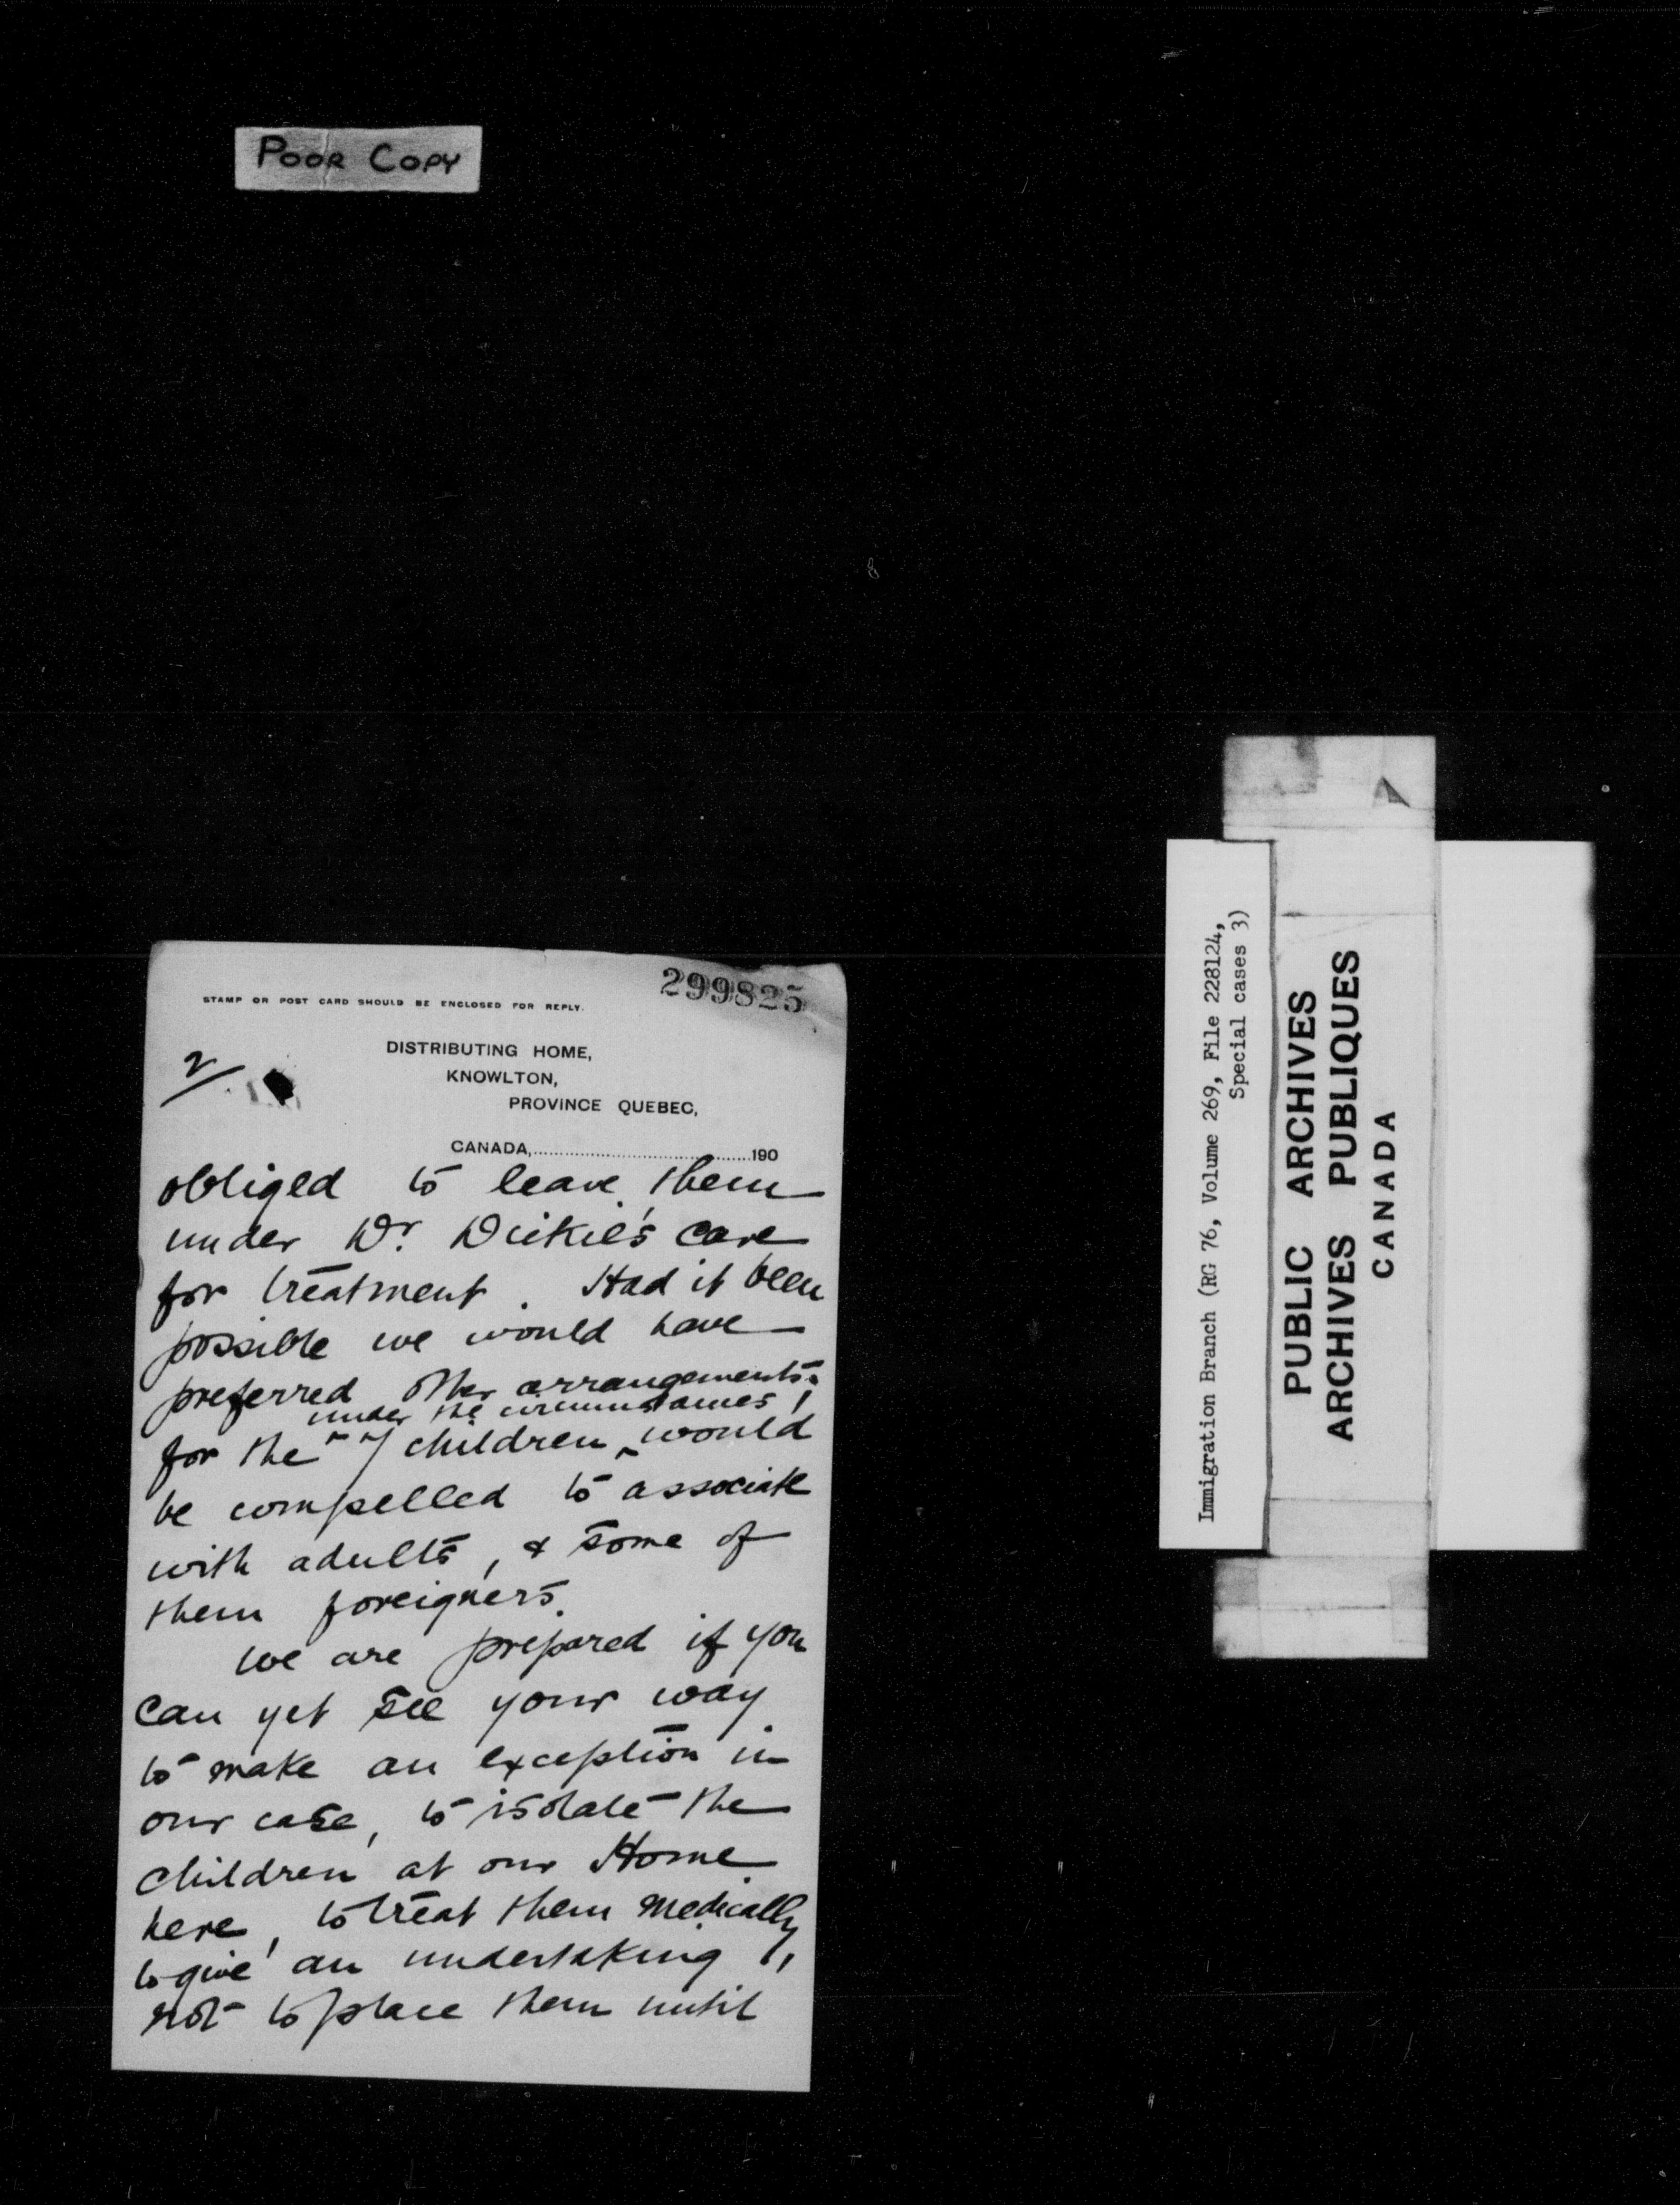 POOR COPY
299825
STAMP OR POST CARD SHOULD BE ENCLOSED FOR REPLY.
2/
DISTRIBUTING HOME,
KNOWLTON,
PROVINCE QUEBEC,
CANADA,..........190
obliged to leave them
under Dr. Dickie's care
for treatment. Had it been
possible we would have
preferred other arrangements;
under the circumstances,
for the children would
be compelled to associate
with adults, & some of
them foreigners.
We are prepared if you
can yet see your way
to make an exception in
our case, to isolate the
children at our Home
here, to treat them medically,
to give an undertaking
not to place them until
Immigration Branch (RG 76, Volume 269, File 228124,
Special cases 3)
PUBLIC ARCHIVES
ARCHIVES PUBLIQUES
CANADA